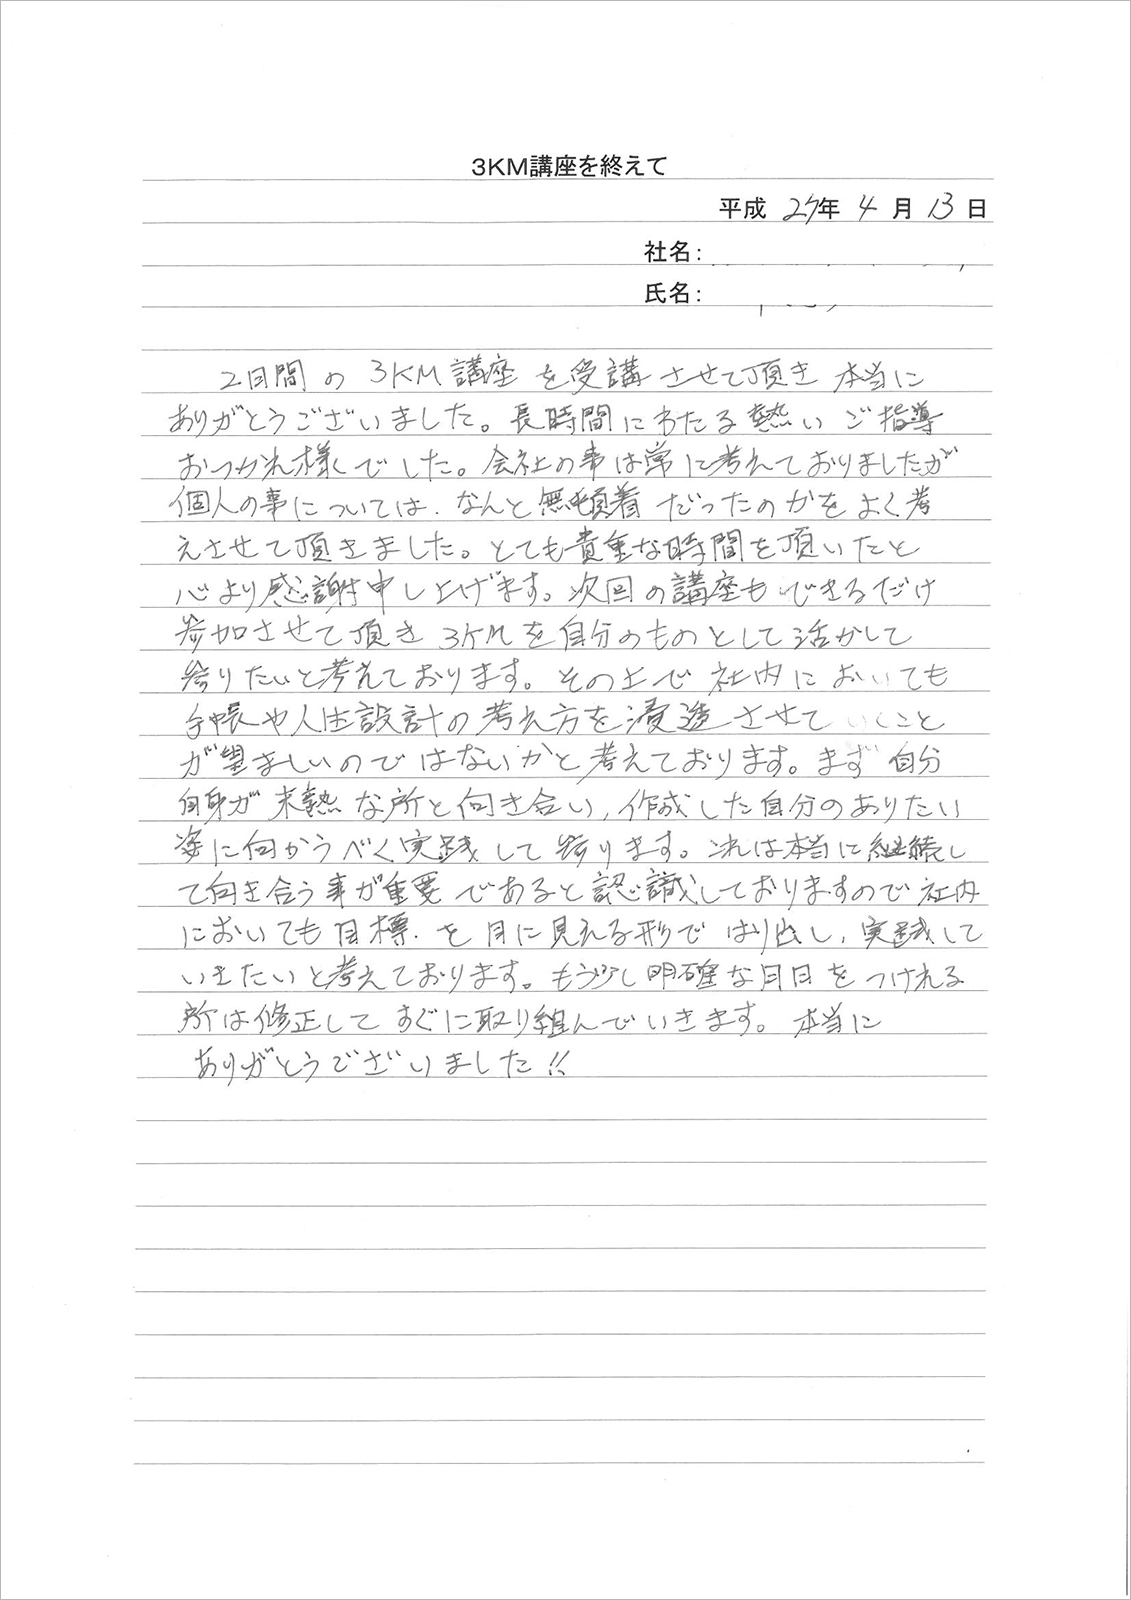 3KM講座を終えて
平成 27年 4月 13日
社名:
氏名:
2日間の 3KM講座を受講させて頂き 本当に
ありがとうございました。長時間にわたる熱いご指導
おつかれ様でした。会社の事は常に考えておりましたが
個人の事については、なんと無頓着だったのかをよく考
えさせて頂きました。とても貴重な時間を頂いたと
心より感謝申し上げます。次回の講座もできるだけ
参加させて頂き 3KMを自分のものとして活かして
参りたいと考えております。その上で社内においても
手帳や人生設計の考え方を浸透させていくこと
が望ましいのではないかと考えております。まず自分
自身が未熟な所と向き合い、作成した自分のありたい
姿に向かうべく実践して参ります。これは本当に継続し
て向き合う事が重要であると認識しておりますので社内
においても目標を目に見える形ではり出し、実践して
いきたいと考えております。もう少し明確な月日をつけれる
所は修正してすぐに取り組んでいきます。本当に
ありがとうございました!!